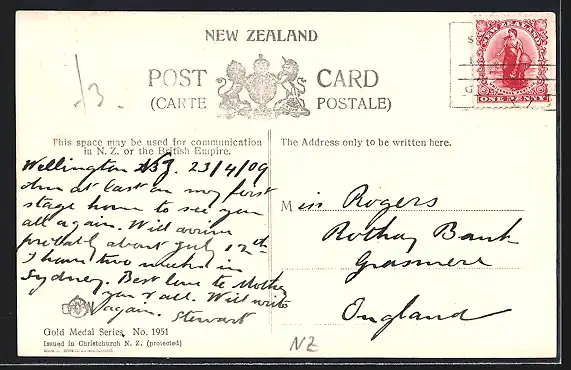 NEW ZEALAND
POST CARD
(CARTE POSTALE)
NEW ZEALAND
ONE PENNY
/3.
This space may be used for communication
in N. Z. or the British Empire.
The Address only to be written here.
Wellington NZ. 23/4/09
Am at last on my first
stage home to see you
all again. Will arrive
probably about July 12th
I have two weeks in
Sydney. Best love to Mother
you & all. Will write
again. Stewart
Miss Rogers
Rothay Bank
Grasmere
England
Gold Medal Series, No. 1951
Issued in Christchurch N. Z. (protected)
NZ